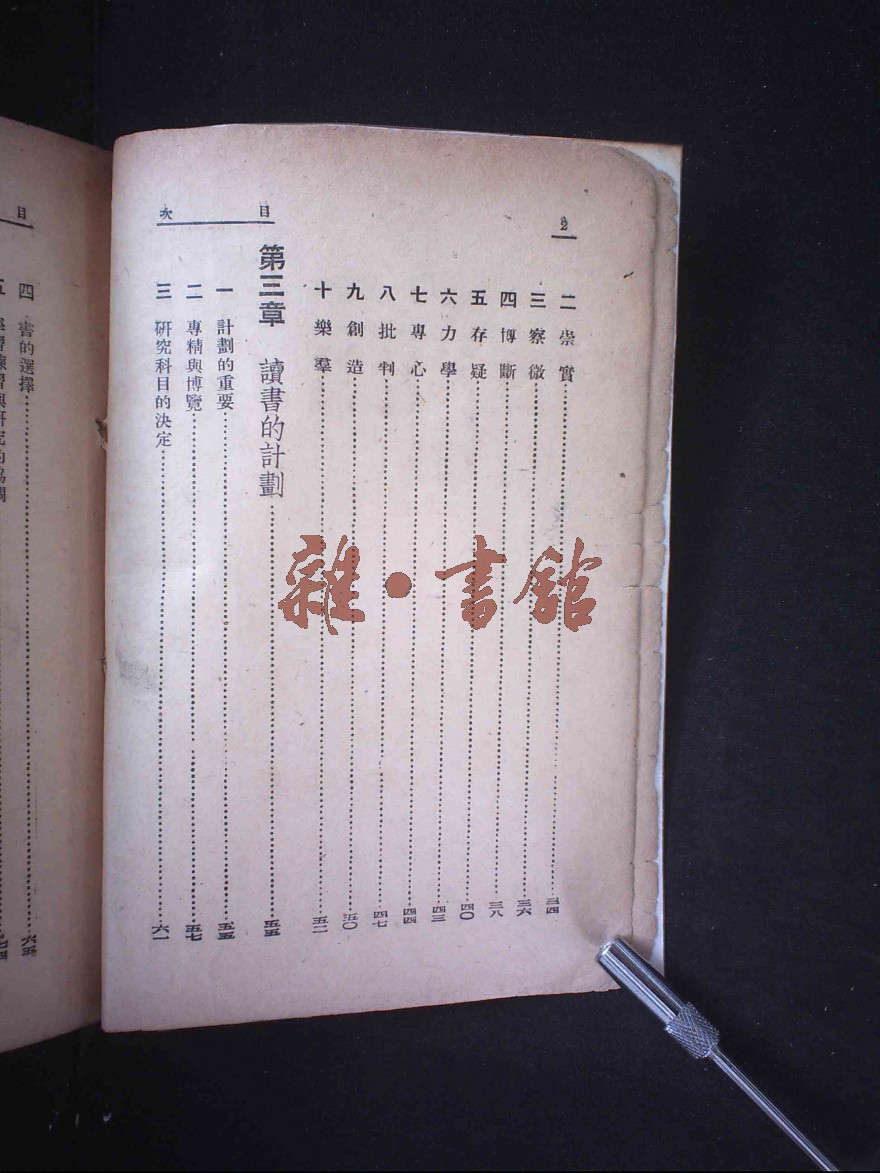 2
目次
二 崇實 三四
三 察微 三六
四 博斷 三八
五 存疑 四〇
六 力學 四三
七 專心 四四
八 批判 四七
九 創造 五〇
十 樂羣 五二
第三章 讀書的計劃 五五
一 計劃的重要 五五
二 專精與博覽 五七
三 研究科目的決定 六一
目
四 書的選擇 六五
雜·書館